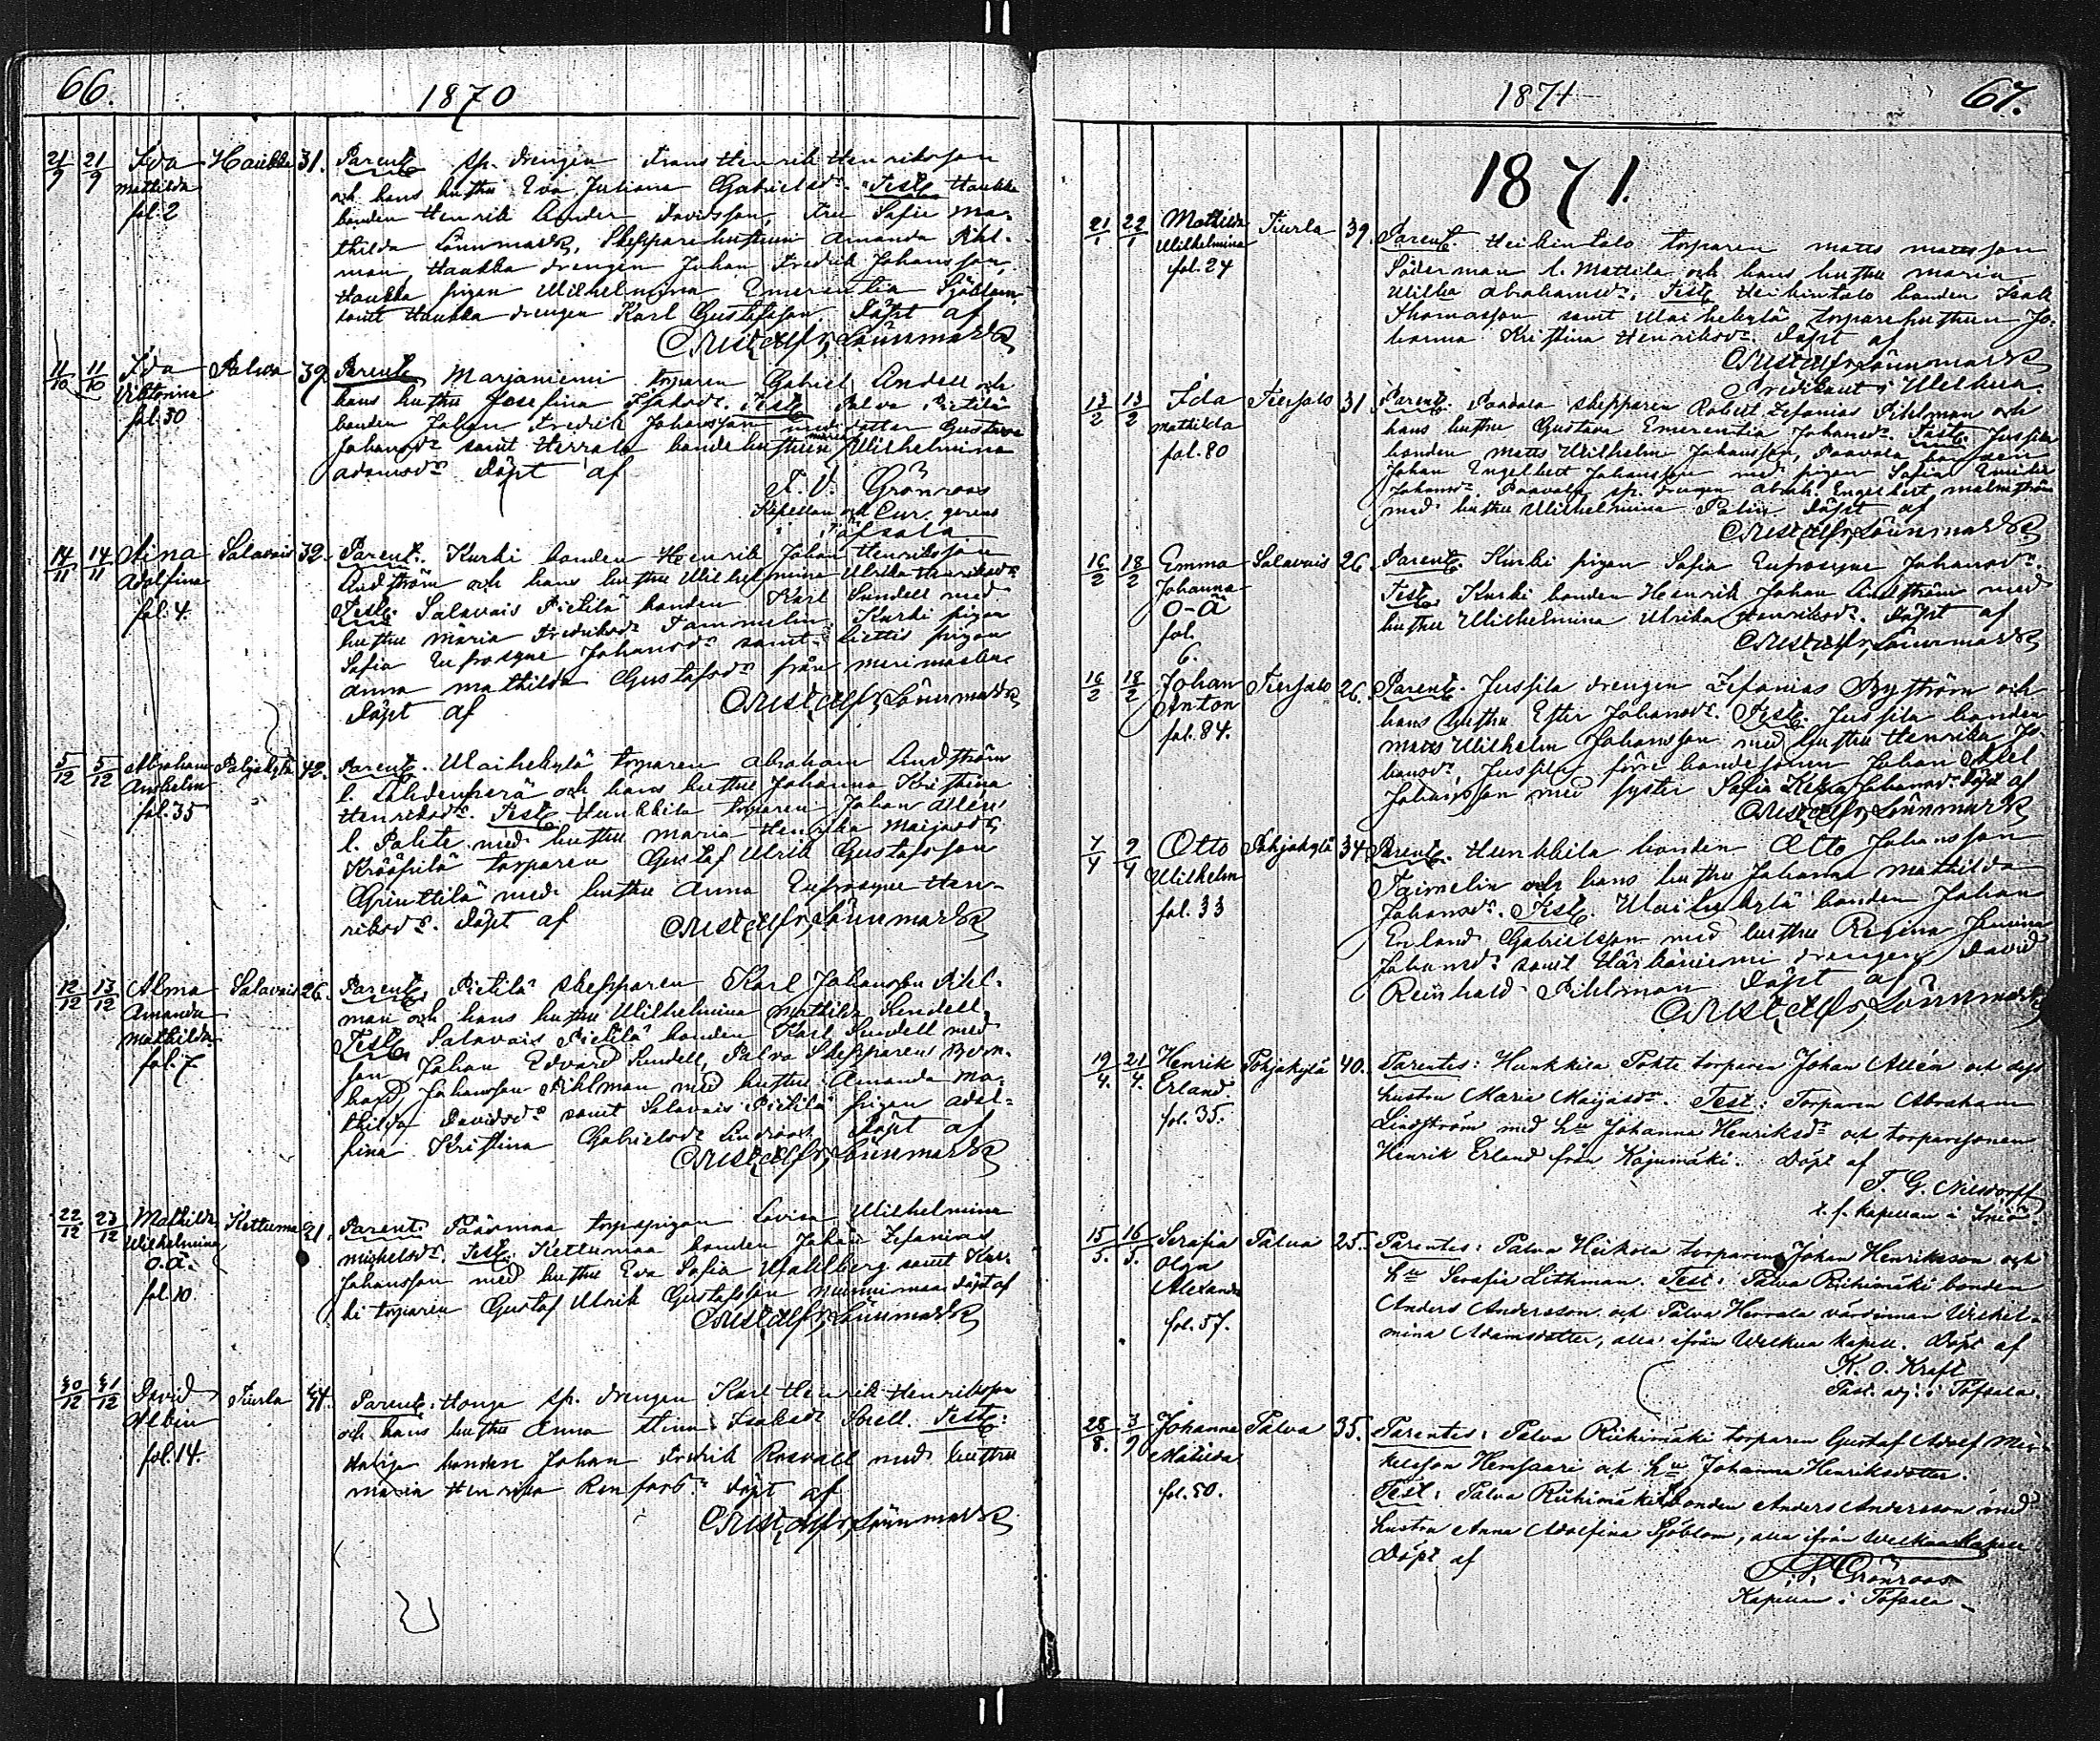 66.
1870
21/9 21/9 Ida Haukka 31. Parent. sp. drengen Frans Henrik Henriksson
Mathilda och hans hustru Eva Juliana Gabrielsdr. Test. Haukka
fol. 2 bonden Henrik Ander Davidsson, Fru Sofie Ma-
thilda Lönnmark, Skepparehustrun Amanda Pihl-
man, Haukka drengen Johan Fredrik Johansson,
Haukka pigan Wilhelmina Emerentia Sjöblom
samt Haukka drengen Karl Gustafsson. Döpt af
Lönnmark
11/10 11/10 Ida Palva 39 Parent. Marjaniemi torparen Gabriel Andell och
Viktorina hans hustru Josefina Isaksdr. Test. Palva Pietilä
fol. 50 bonden Johan Fredrik Johansson med dotter Gustava
Johansdr samt Herrala bondehustrun Maria Wilhelmina
Adamsdr Döpt af
F. V. Grönroos
Kapellan och Cur. gerens
i Töfsala
14/11 14/11 Aina Salavais 32. Parent. Kurki bonden Henrik Johan Henriksson
Adolfina Lindström och hans hustru Wilhelmina Ulrika Henriksdr
fol. 4. Test. Salavais Pietilä bonden Karl Sundell med
hustru Maria Fredriksdr Tammelin, Kurki pigan
Sofia Eufrosyne Johansdr samt Liettis pigan
Anna Mathilda Gustafsdr från Merimasku
Döpt af Lönnmark
5/12 5/12 Abraham Pohjakylä 42. Parent. Vaihekylä torparen Abraham Lindström
Anshelm l. Lahdenperä och hans hustru Johanna Kristina
fol. 35 Henriksdr. Test. Hunkkila torparen Johan Allén
l. Pohte med hustru Maria Henrika Maijasdr
Krääfilä torparen Gustaf Ulrik Gustafsson
Grinttilä med hustru Anna Eufrosyne Hen-
riksdr. Döpt af Lönnmark
12/12 13/12 Alma Salavais 26. Parent. Pietilä skepparen Karl Johansson Pihl-
Amanda man och hans hustru Wilhelmina Mathilda Sundell,
Mathilda Test. Salavais Pietilä bonden Karl Sundell med
fol. 7 son Johan Edvard Sundell, Palva Skepparen Bern-
hard Johansson Pihlman med hustru Amanda Ma-
thilda Davidsdr samt Salavais Pietilä pigan Adol-
fina Kristina Gabrielsdr Lindroos Döpt af
Lönnmark
22/12 23/12 Mathilda Kettumaa 21. Parent. Päärmaa torpspigan Lovisa Wilhelmina
Wilhelmina Michelsdr. Test. Kettumaa bonden Johan Zefanias
o.ä. Johansson med hustru Eva Sofia Wahlberg samt Kur-
fol. 10 ki torparen Gustaf Ulrik Gustafsson Nummimaa Döpt af
Lönnmark
30/12 31/12 David Tiurla 44. Parent. sp. drengen Karl Henrik Henriksson
Albin och hans hustru Anna Isaksdr Sorell. Test.
fol. 14. bonden Johan Fredrik Rosvall med hustru
Maria Henrika Renforsdr Döpt af
Lönnmark
1871
67.
1871.
21/1 22/1 Mathilda Tiurla 39. Parent. Heikintalo torparen Matts Mattsson
Wilhelmina Söderman l. Mattila och hans hustru Maria
fol. 24 Ulrika Abrahamsdr. Test. Heikintalo bonden Isak
Thomasson samt Vaihekylä torparehustrun Jo-
hanna Kristina Henriksdr. Döpt af
Lönnmark
Predikant i Welkua.
13/2 13/2 Ida Tiersalo 31 Parent. Paavola skepparen Robert Zefanias Pihlman och
Mathilda hans hustru Gustava Emerentia Johansdr. Test. Jussila
fol. 80 bonden Matts Wilhelm Johansson, Paavola
Johan Engelbert Johansson med pigan Sofia
Johansdr. Paavola sp. drengen Abrah. Engelbert Malmström
med hustru Wilhelmina Palin Döpt af
Lönnmark
16/2 18/2 Emma Salavais 26 Parent. Kurki pigan Sofia Eufrosyne Johansdr.
Johanna Test. Kurki bonden Henrik Johan Lindström med
o-ä hustru Wilhelmina Ulrika Henriksdr. Döpt af
fol. Lönnmark
6.
16/2 18/2 Johan Tiersalo 26. Parent. Jussila drengen Zefanias Byström och
Anton hans hustru Ester Johansdr. Test. Jussila bonden
fol. 84. Matts Wilhelm Johansson med hustru Henrika Jo-
hansdr, Jussila förre bondesonen Johan Axel
Johansson med syster Sofia Johansdr. Döpt af
Lönnmark
7/4 9/4 Otto Pohjakylä 34 Parent. Hunkkila bonden Otto Johansson
Wilhelm Taimelin och hans hustru Johanna Mathilda
fol. 33 Johansdr. Test. Vaihekylä bonden Johan
Erland Gabrielsson med hustru Regina
Johansdr samt Härkäniemi drengen David
Reinhold Pihlman Döpt af
Lönnmark
19/4. 21/4. Henrik Pohjakylä 40. Parentes: Hunkkila Pohte torparen Johan Allén och dess
Erland. hustru Maria Maijasdr. Test: Torparen Abraham
fol. 35. Lindström med hu Johanna Henriksdr och torparesonen
Henrik Erland från Kajumäki. Döpt af
T. G.
t. f. Kapellan i
15/5. 16/5. Serafia Palva 25. Parentes: Palva Heikola torparen Johan Henriksson och
Olga hu Serafia Lithman. Test: Palva Riihimäki bonden
Alexandra Anders Andersson och Palva Herrala värdinnan Wilhel-
fol. 57. mina Adamsdotter, alla ifrån Welkua Kapell. Döpt af
K. O. Kraft
Past. adj. i Töfsala.
28/8. 3/9 Johanna Palva 35. Parentes: Palva Riihimäki torparen Gustaf Adolf Mi-
Matilda kelsson Hemsaari och hu Johanna Henriksdotter.
fol. 50. Test: Palva Riihimäki bonden Anders Andersson med
hustru Anna Adolfina Sjöblom, alla ifrån Welkua Kapell
Döpt af
F V Grönroos
Kapellan i Töfsala